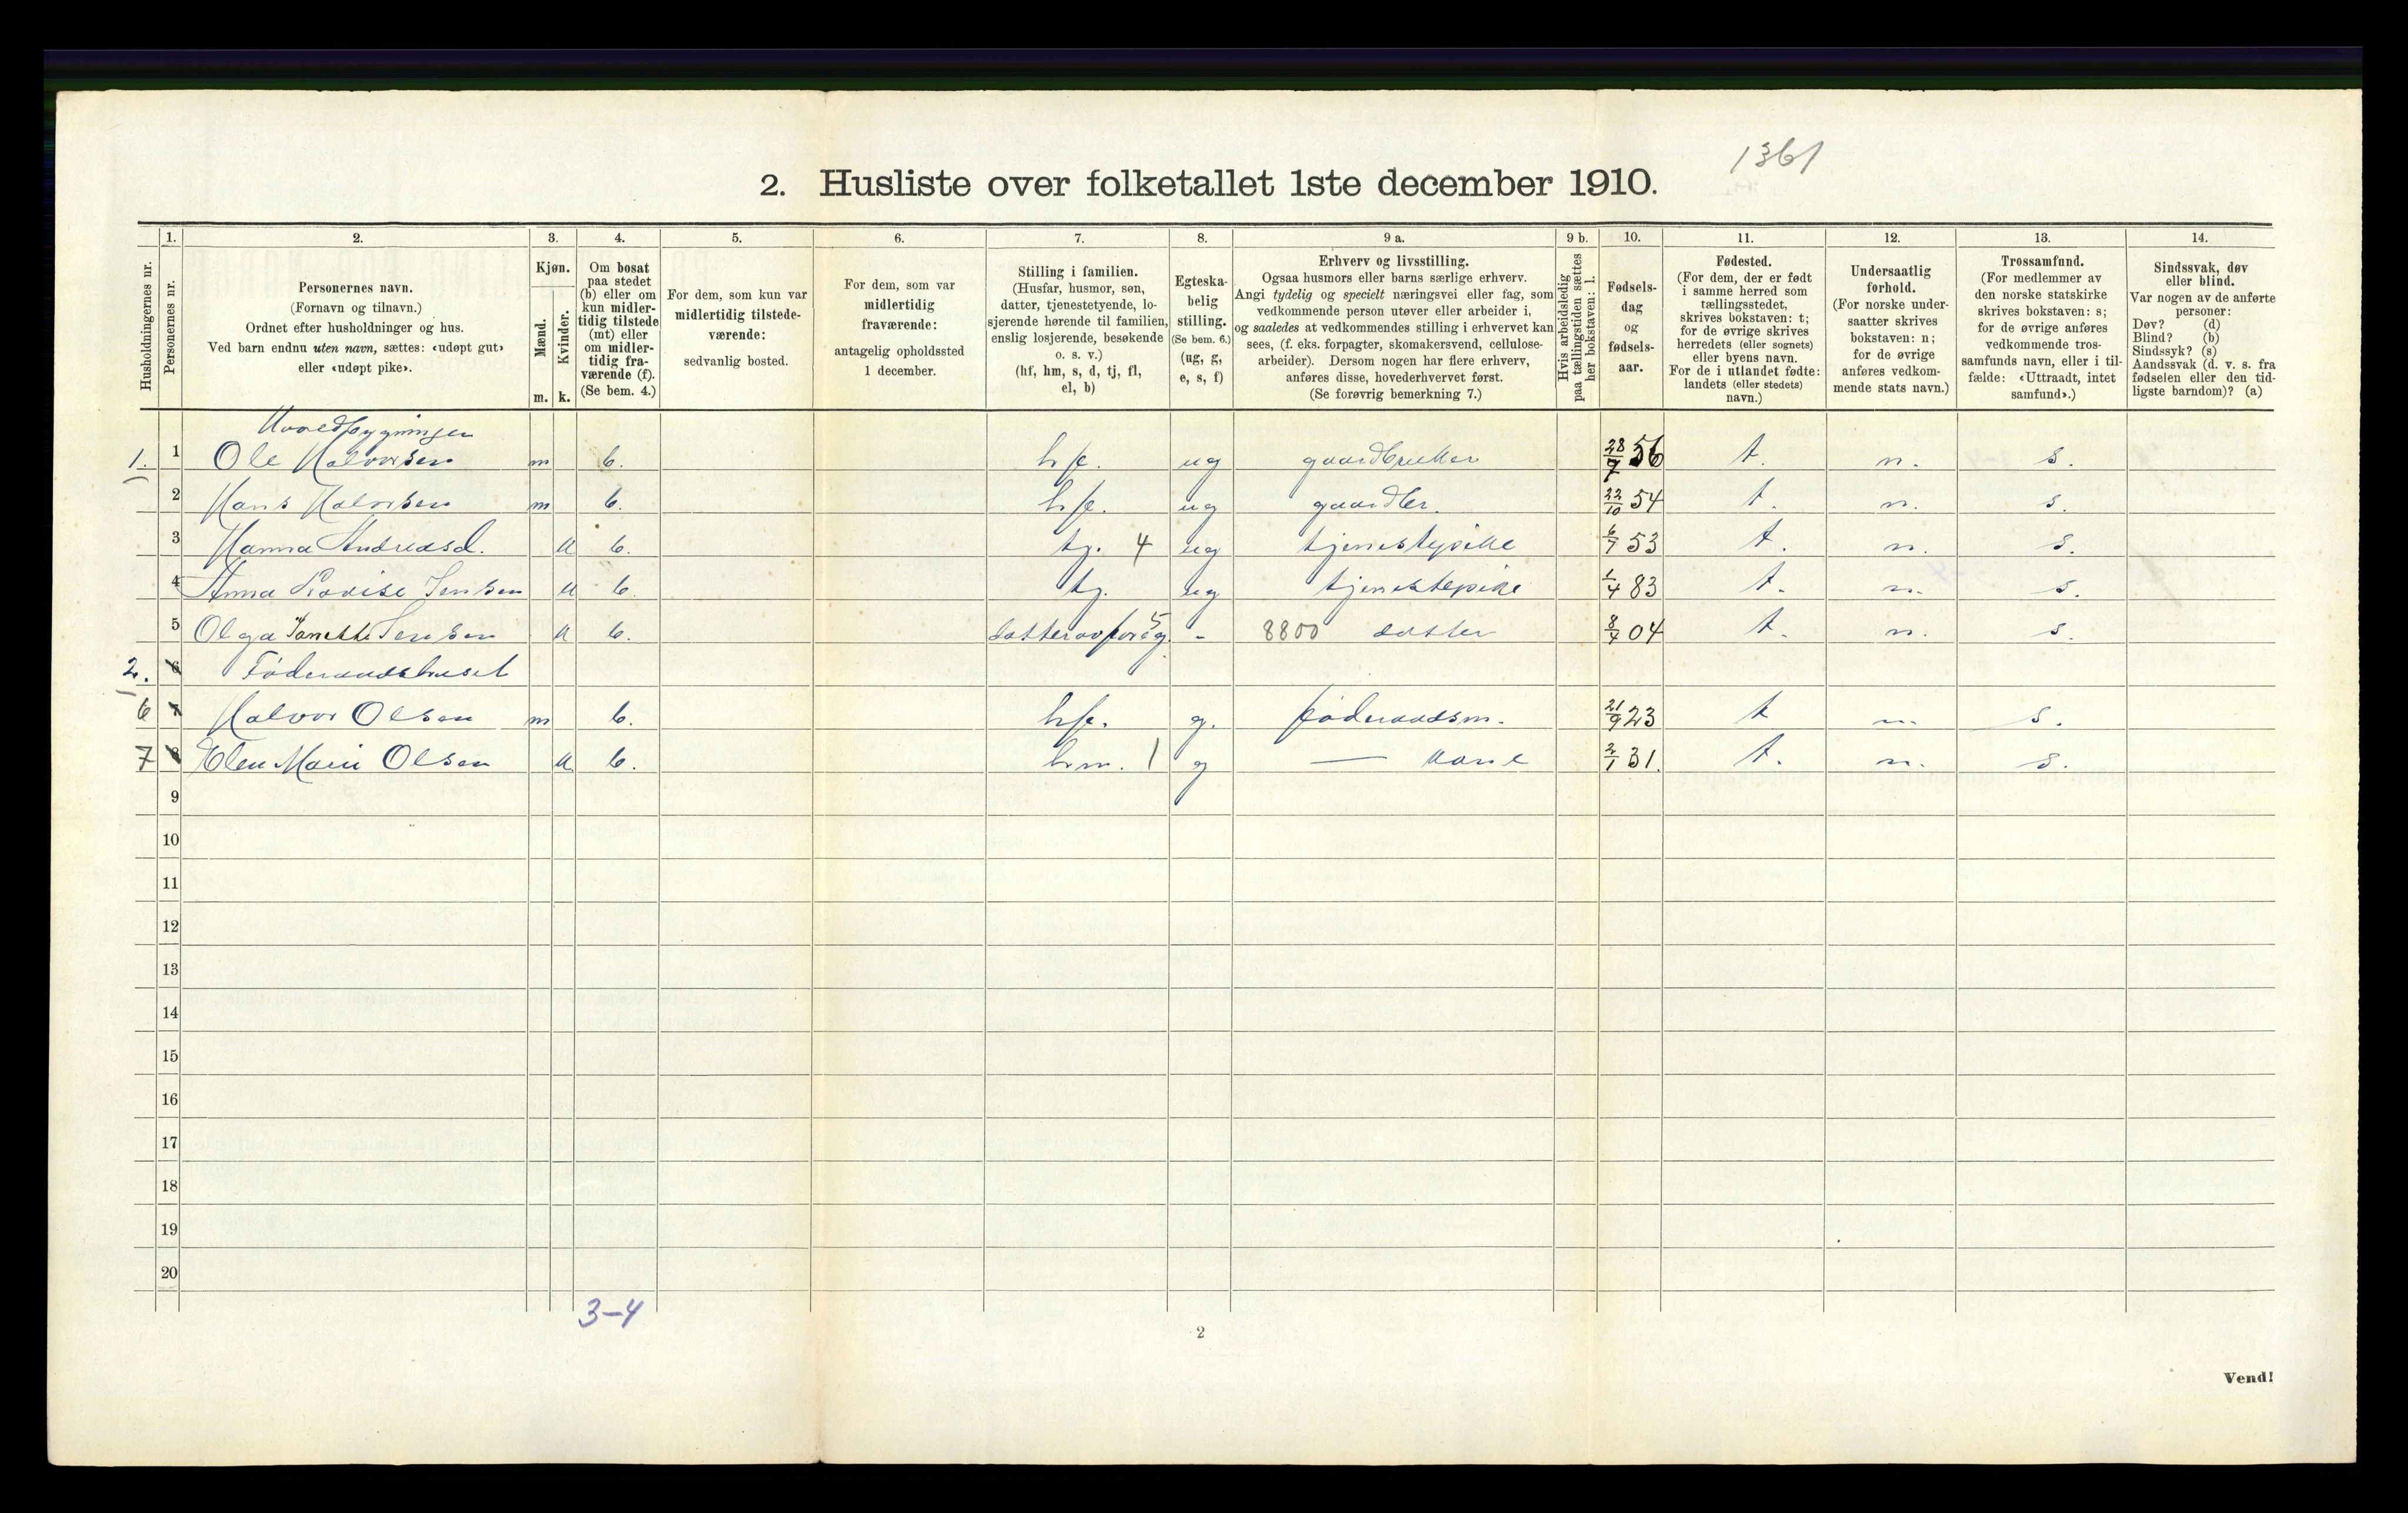 1361
2. Husliste over folketallet 1ste december 1910.
Husholdningernes nr.
1.
Personernes nr.
2.
Personernes navn.
(Fornavn og tilnavn.)
Ordnet efter husholdninger og hus.
Ved barn endnu uten navn, sættes: «udøpt gut»
eller «udøpt pike».
3.
Kjøn.
Mænd.
Kvinder.
m. k.
4.
Om bosat
paa stedet
(b) eller om
kun midler-
tidig tilstede
(mt) eller
om midler-
tidig fra-
værende (f).
(Se bem. 4.)
5.
For dem, som kun var
midlertidig tilstede-
værende:
sedvanlig bosted.
6.
For dem, som var
midlertidig
fraværende:
antagelig opholdssted
1 december.
7.
Stilling i familien.
(Husfar, husmor, søn,
datter, tjenestetyende, lo-
sjerende hørende til familien,
enslig losjerende, besøkende
o. s. v.)
(hf, hm, s, d, tj, fl,
el, b)
8.
Egteska-
belig
stilling.
(Se bem. 6.)
(ug, g,
e, s, f)
9 a.
Erhverv og livsstilling.
Ogsaa husmors eller barns særlige erhverv.
Angi tydelig og specielt næringsvei eller fag, som
vedkommende person utøver eller arbeider i,
og saaledes at vedkommendes stilling i erhvervet kan
sees, (f. eks. forpagter, skomakersvend, cellulose-
arbeider). Dersom nogen har flere erhverv,
anføres disse, hovederhvervet først.
(Se forøvrig bemerkning 7.)
9 b.
Hvis arbeidsledig
paa tællingstiden sættes
her bokstaven: l.
10.
Fødsels-
dag
og
fødsels-
aar.
11.
Fødested.
(For dem, der er født
i samme herred som
tællingsstedet,
skrives bokstaven: t;
for de øvrige skrives
herredets (eller sognets)
eller byens navn.
For de i utlandet fødte:
landets (eller stedets)
navn.)
12.
Undersaatlig
forhold.
(For norske under-
saatter skrives
bokstaven: n;
for de øvrige
anføres vedkom-
mende stats navn.)
13.
Trossamfund.
(For medlemmer av
den norske statskirke
skrives bokstaven: s;
for de øvrige anføres
vedkommende tros-
samfunds navn, eller i til-
fælde: «Uttraadt, intet
samfund».)
14.
Sindssvak, døv
eller blind.
Var nogen av de anførte
personer:
Døv? (d)
Blind? (b)
Sindssyk? (s)
Aandssvak (d. v. s. fra
fødselen eller den tid-
ligste barndom)? (a)
Hovedbygningen
1. 1 Ole Halvorsen m b. hf. ug gaardbruker 28/9 56 t. n. s.
2 Hans Halvorsen m b. hf. ug gaardbr. 22/10 54 t. n. s.
3 Hanna Andreasd. k b. tj. 4 ug tjenestepike 6/7 53 t. n. s.
4 Anna Lovise Jensen k b. tj. ug tjenestepike 1/4 83 t. n. s.
5 Olga Janette Jensen k b. datter av foreg. 5 - 8800 datter 8/4 04 t. n. s.
2. 6 Føderaadshuset
6 7 Halvor Olsen m b. hf. g. føderaadsm. 21/9 23 t n. s.
7 8 Elen Marie Olsen k b. hm. 1 g — kone 2/1 31. t. n. s.
9
10
11
12
13
14
15
16
17
18
19
20
3-4
2
Vend!